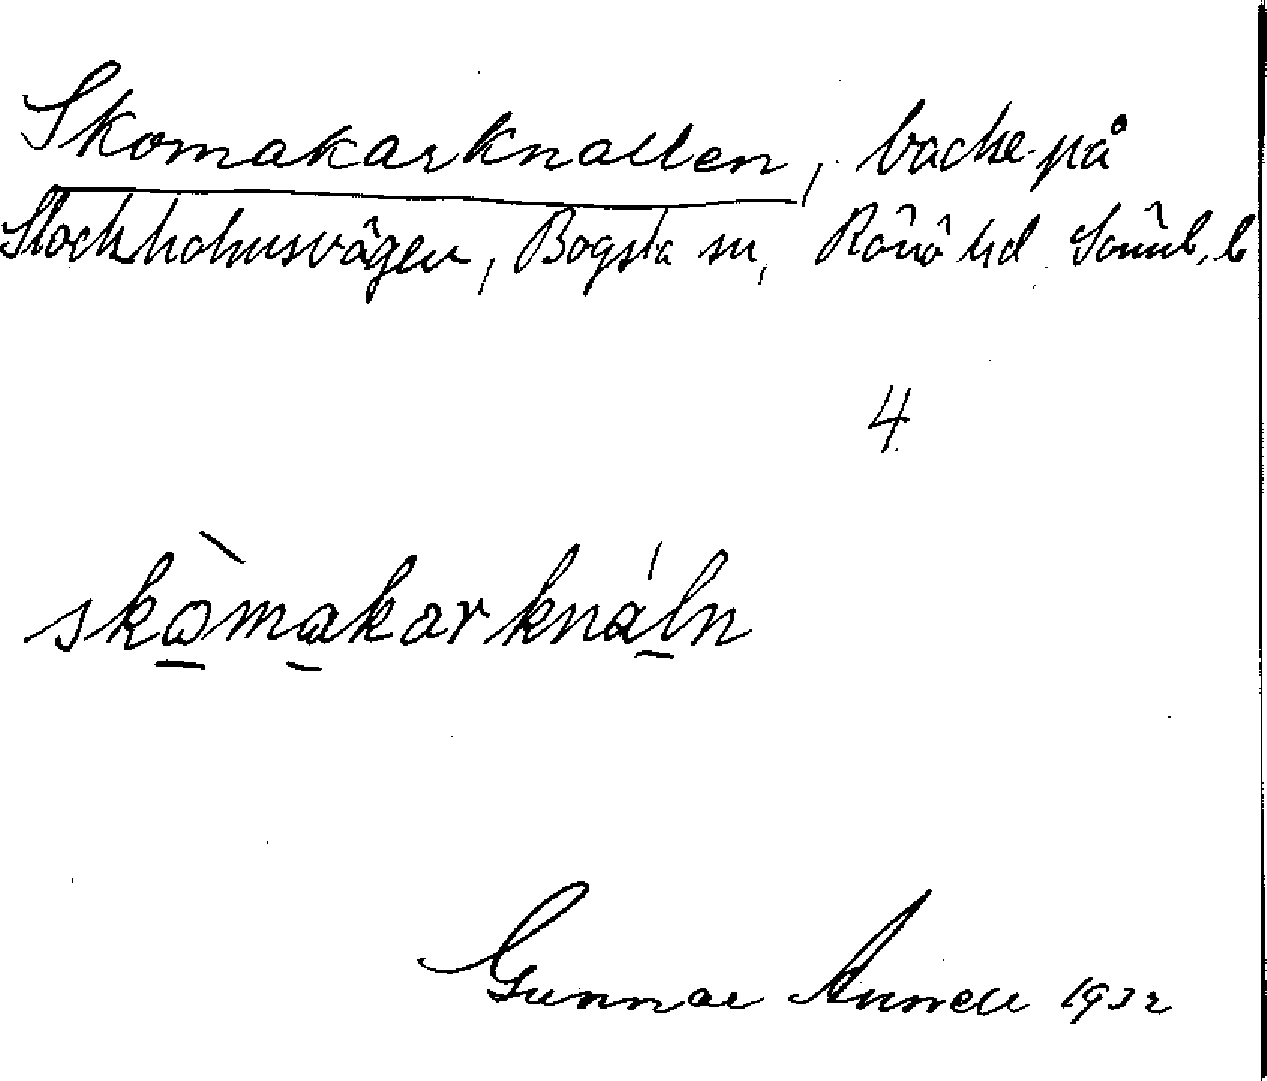 Skomakarknallen, backe på
Stockholmsvägen, Bogsta sn, Rönö hd Söderml. l
4
skòmakarknáln
Gunnar 1932